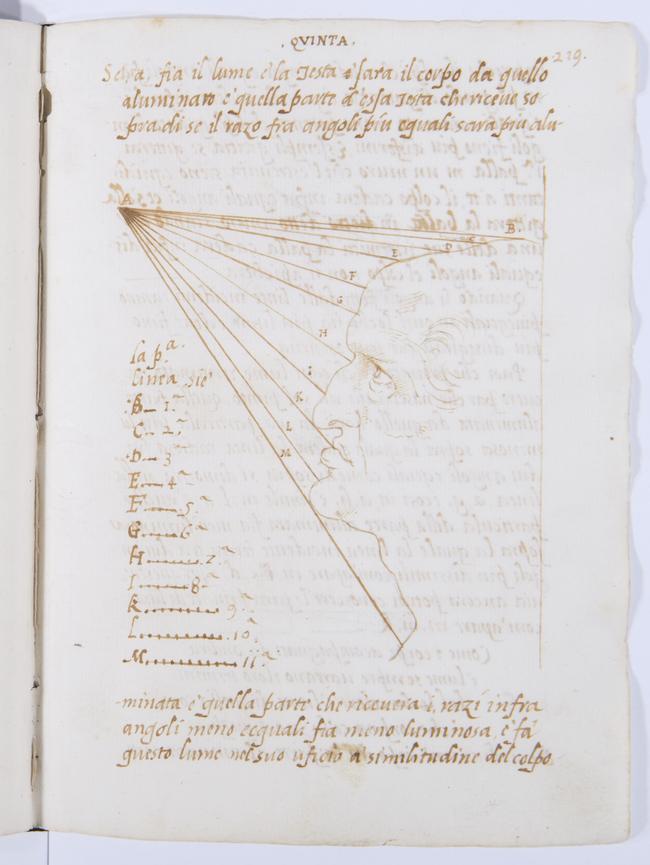 . QVINTA .
219.
Se A. fia il lume e la Testa sara il corpo da quello
aluminato e quella parte d essa Testa che riceve so
pra di se il razo fra angoli piu equali sara piu alu-
A
B
E
F
G
H
I
K
L
M
la pa.
linea sie
B 1a
C 2a
D 3a
E 4a
F 5a
G 6a
H 7a
I 8a
K 9a
L 10a
M 11a
minata e quella parte che ricevera i razi infra
angoli meno equali fia meno luminosa, e fa
questo lume nel suo uficio a similitudine del colpo